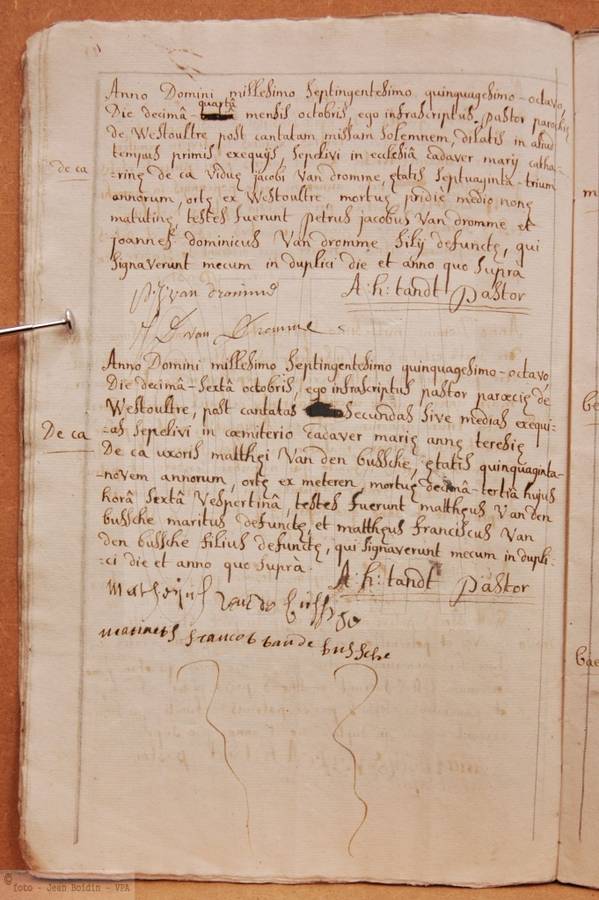 Anno Domini millesimo Septingentesimo quinquagesimo-octavo,
Die decimâ-quartâ mensis octobris, ego infrascriptus pastor parochiæ
de Westoultre post cantatam missam solemnem, dilatis in aliud
tempus primis exequijs, sepelivi in ecclesiâ cadaver mariæ catha-
De ca
-rinæ de ca viduæ jacobi Van dromme, ætatis septuaginta-trium
annorum, ortæ ex Westoultre, mortuæ pridie medio nonæ
matutinæ, testes fuerunt petrus jacobus Van dromme et
joannes dominicus Van dromme filij defunctæ, qui
Signaverunt mecum in duplici die et anno quo Suprà
A: h: tandt Pastor
PJ van dromme
J D van Dromme
Anno Domini millesimo Septingentesimo quinquagesimo-octavo,
Die decimâ-Sextâ octobris, ego infrascriptus pastor parœciæ de
Westoultre, post cantatas Secundas Sive medias exequi:
De ca
:as Sepelivi in cœmiterio Cadaver mariæ annæ teresiæ
De ca uxoris matthæi Van den bussche, ætatis quinquaginta-
-novem annorum, ortæ ex meteren, mortuæ decimâ-tertiâ hujus
horâ Sextâ Vespertinâ, testes fuerunt mattheus Van den
bussche maritus defunctæ, et mattheus franciscus Van
den bussche filius defunctæ, qui Signaverunt mecum in dupli-
:ci die et anno quo Suprà.
A: h: tandt Pastor
van de
vande bussche
© foto - Jean Boidin - VPA